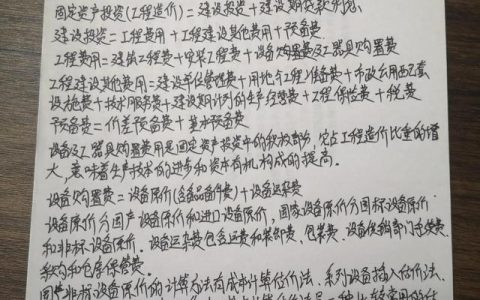 固定资产投资(工程造价)=建设投资+建设期贷款利息.
建设投资=工程费用+工程建设其他费用+预备费
工程费用=建筑工程费+安装工程费+设备购置费及工器具购置费
工程建设其他费用=建设单位管理费+用地与工程准备费+市政公用配套
设施费+技术服务费+建设期计列的生产经营费+工程保险费+税费
预备费=价差预备费+基本预备费
设备及工器具购置费用是固定资产投资中的积极部分,它占工程造价比重的增
大,意味着生产技术的进步和资本有机构成的提高。
设备购置费=设备原价(含备品备件费)+设备运杂费
设备原价分国产设备原价和进口设备原价,国产设备原价分国标设备原价
和非标设备原价。设备运杂费包含运费和装卸费、包装费、设备供销部门手续费、
采购和仓库保管费。
国产非标设备原价的计算方法有成本计算估价法、系列设备插入估价法、